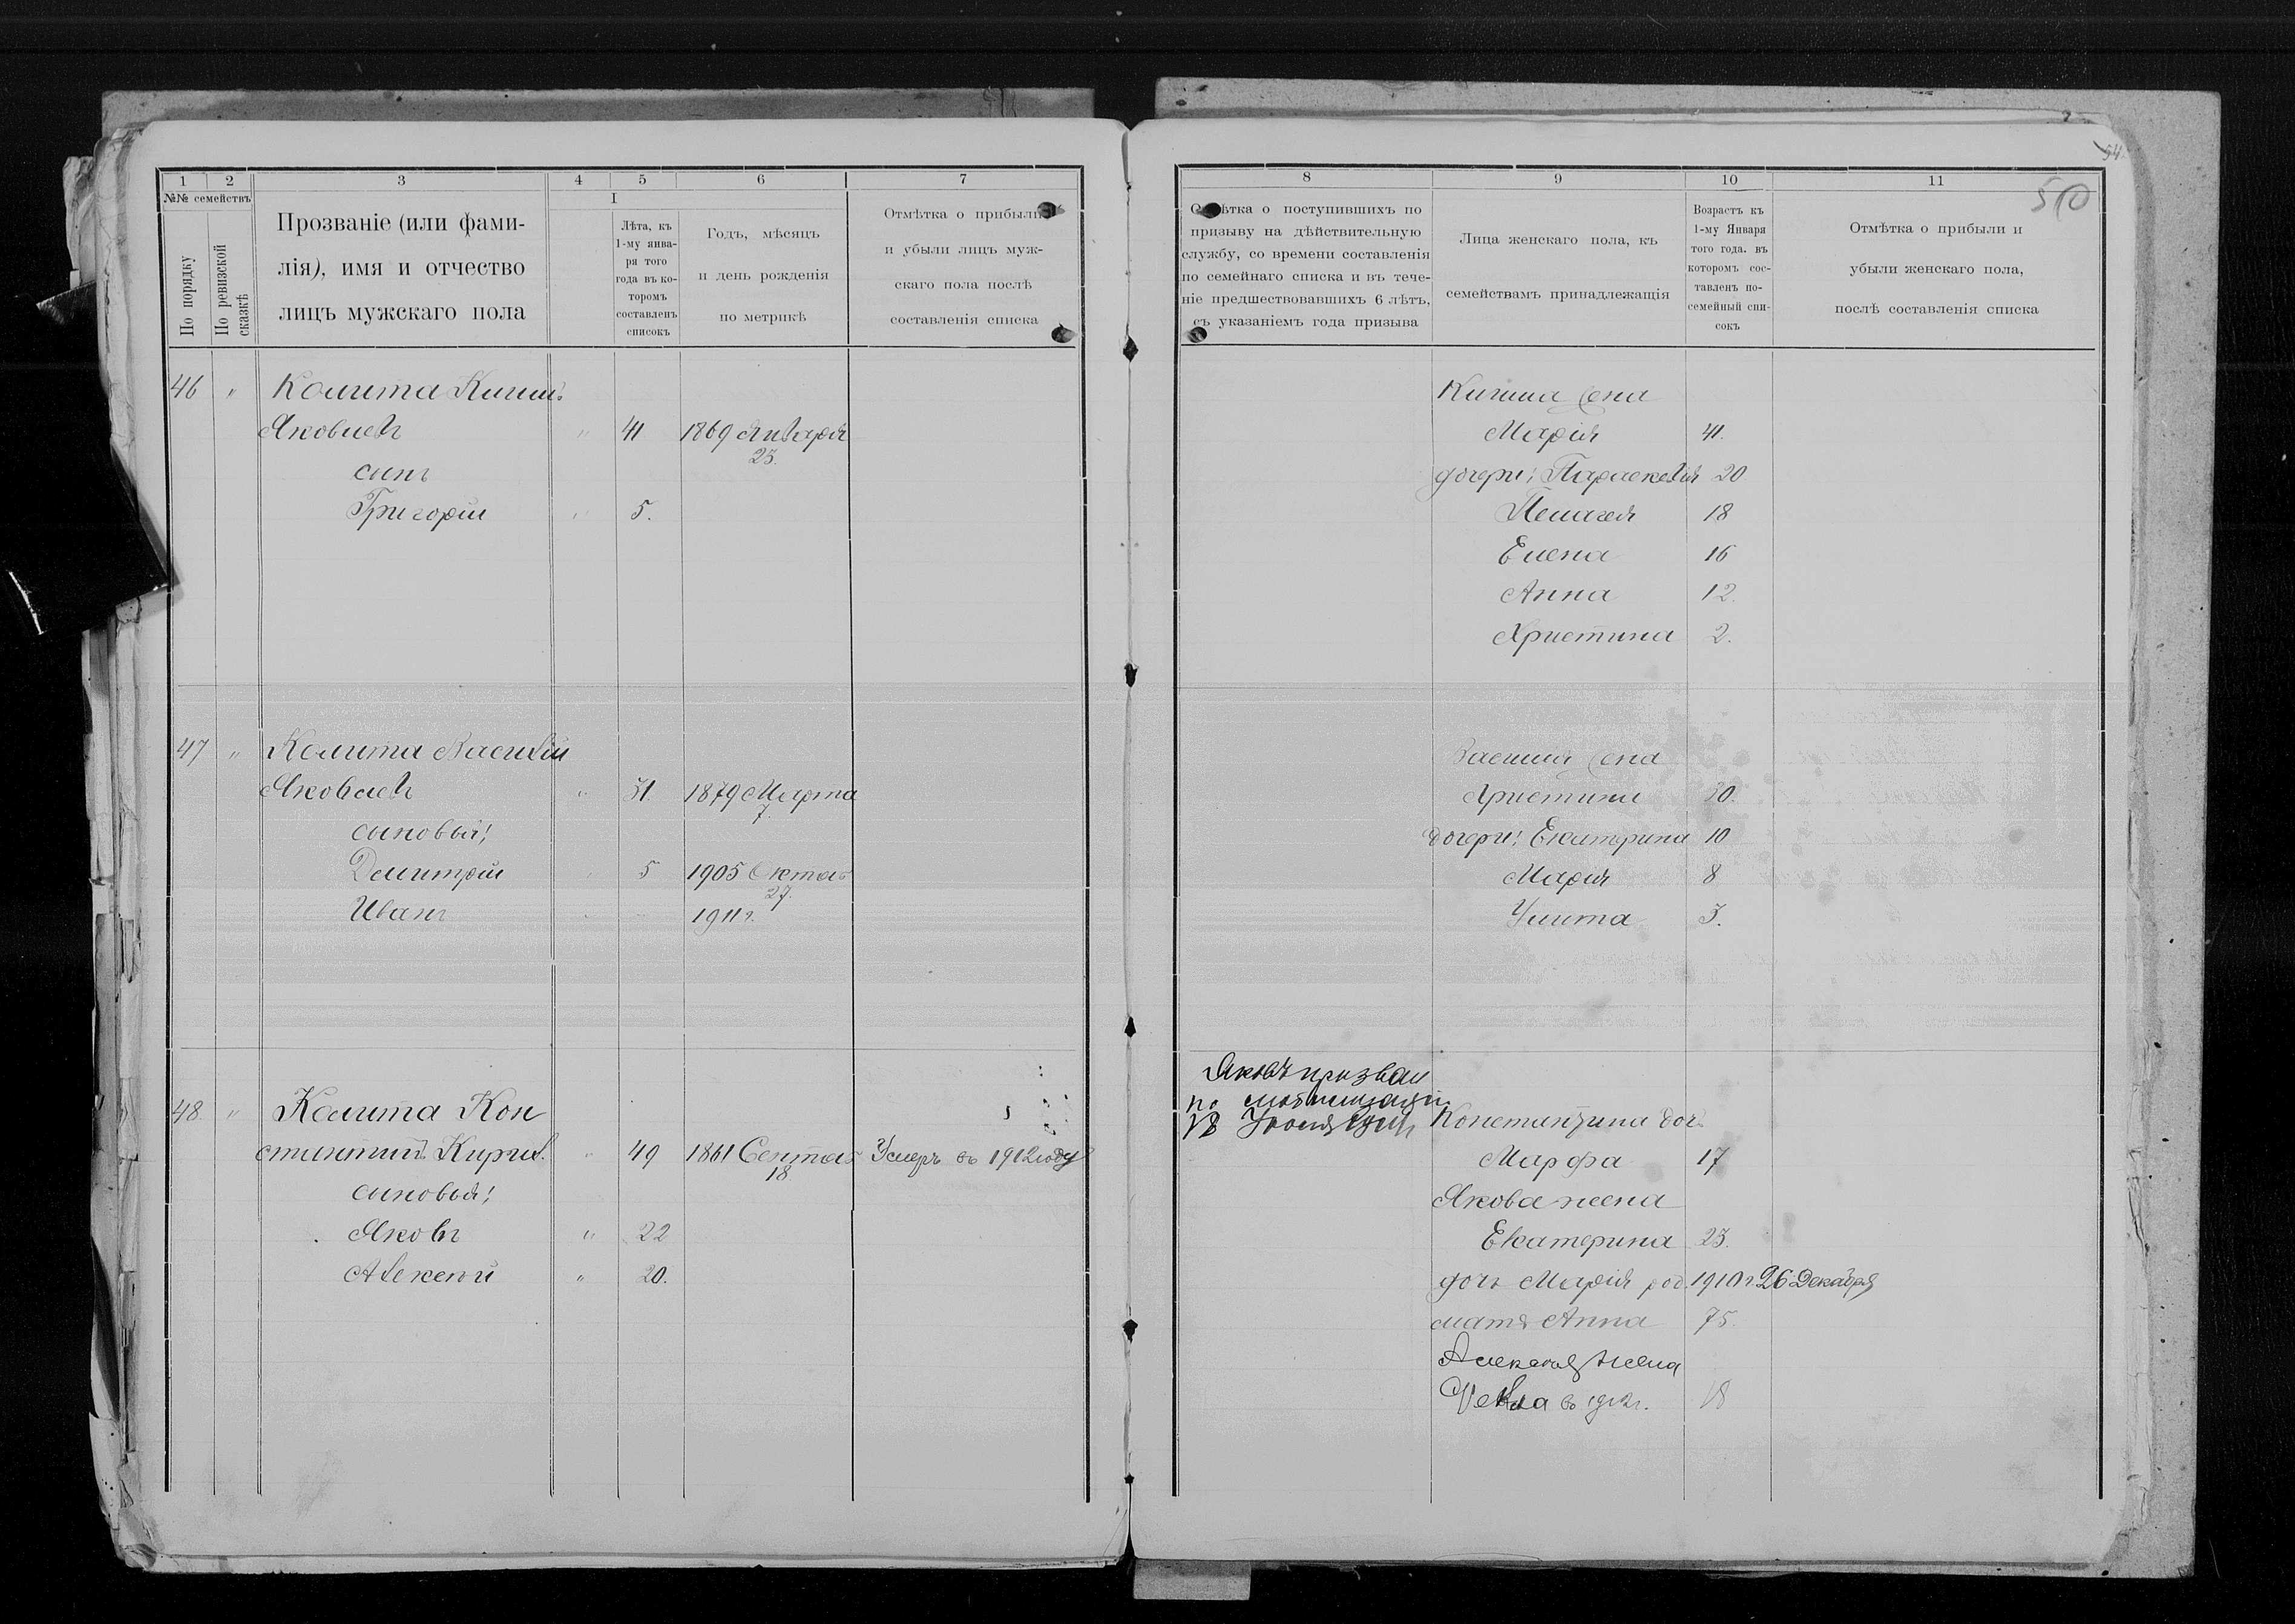 1
2
3
4
5
6
7
№№ семействъ
По порядку
По ревизской сказкѣ
Прозваніе (или фами-
лія), имя и отчество
лицъ мужскаго пола
I
Лѣта, къ
1-му янва-
ря того
года въ ко-
торомъ
составленъ
списокъ
Годъ, мѣсяцъ
и день рожденія
по метрикѣ
Отмѣтка о прибыли
и убыли лицъ муж-
скаго пола послѣ
составленія списка
46 " Калита
Яковлевъ " 41 1869 Января
23.
сынъ
Григорій " 5.
47 " Калита Василій
Яковлевъ " 31. 1879 Марта
7.
сыновья:
Димитрій 5 1905 Октяб
27.
Иванъ 1911 г.
48 " Калита Кон
стантинъ Кирил. " 49 1861 Сентяб Умеръ въ 1912 году
18
сыновья:
Яковъ " 22
Алексѣй " 20.
54
510
8
9
10
11
Отмѣтка о поступившихъ по
призыву на дѣйствительную
службу, со времени составленія
по семейнаго списка и въ тече-
ніе предшествовавшихъ 6 лѣтъ,
съ указаніемъ года призыва
Лица женскаго пола, къ
семействамъ принадлежащія
Возрастъ къ
1-му Января
того года. въ
которомъ сос-
тавленъ по-
семейный спи-
сокъ
Отмѣтка о прибыли и
убыли женскаго пола,
послѣ составленія списка
жена
Марія 41.
дочери: Параскевія 20
Пелагея 18
Елена 16
Анна 12.
Христина 2.
Василія жена
Христина 30.
дочери: Екатерина 10
Марія 8
Улита 3.
Яковъ призван
по мобилизаціи
18
Константина доч.
Марфа 17
Якова жена
Екатерина 23.
дочь Марія род. 1910 г. 26 Декабря
мать Анна 75.
Алексея жена
Фекла въ 1912 г. 18